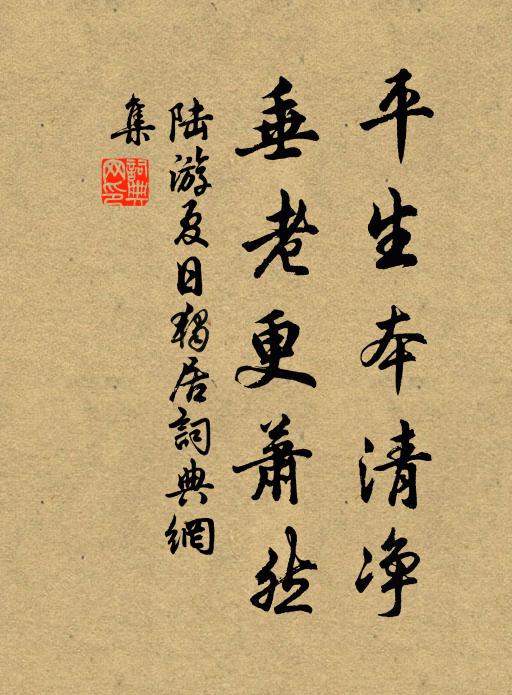 平生本清净
垂老更蕭然
陆游夏日獨居詞典網
集
詞典
网印